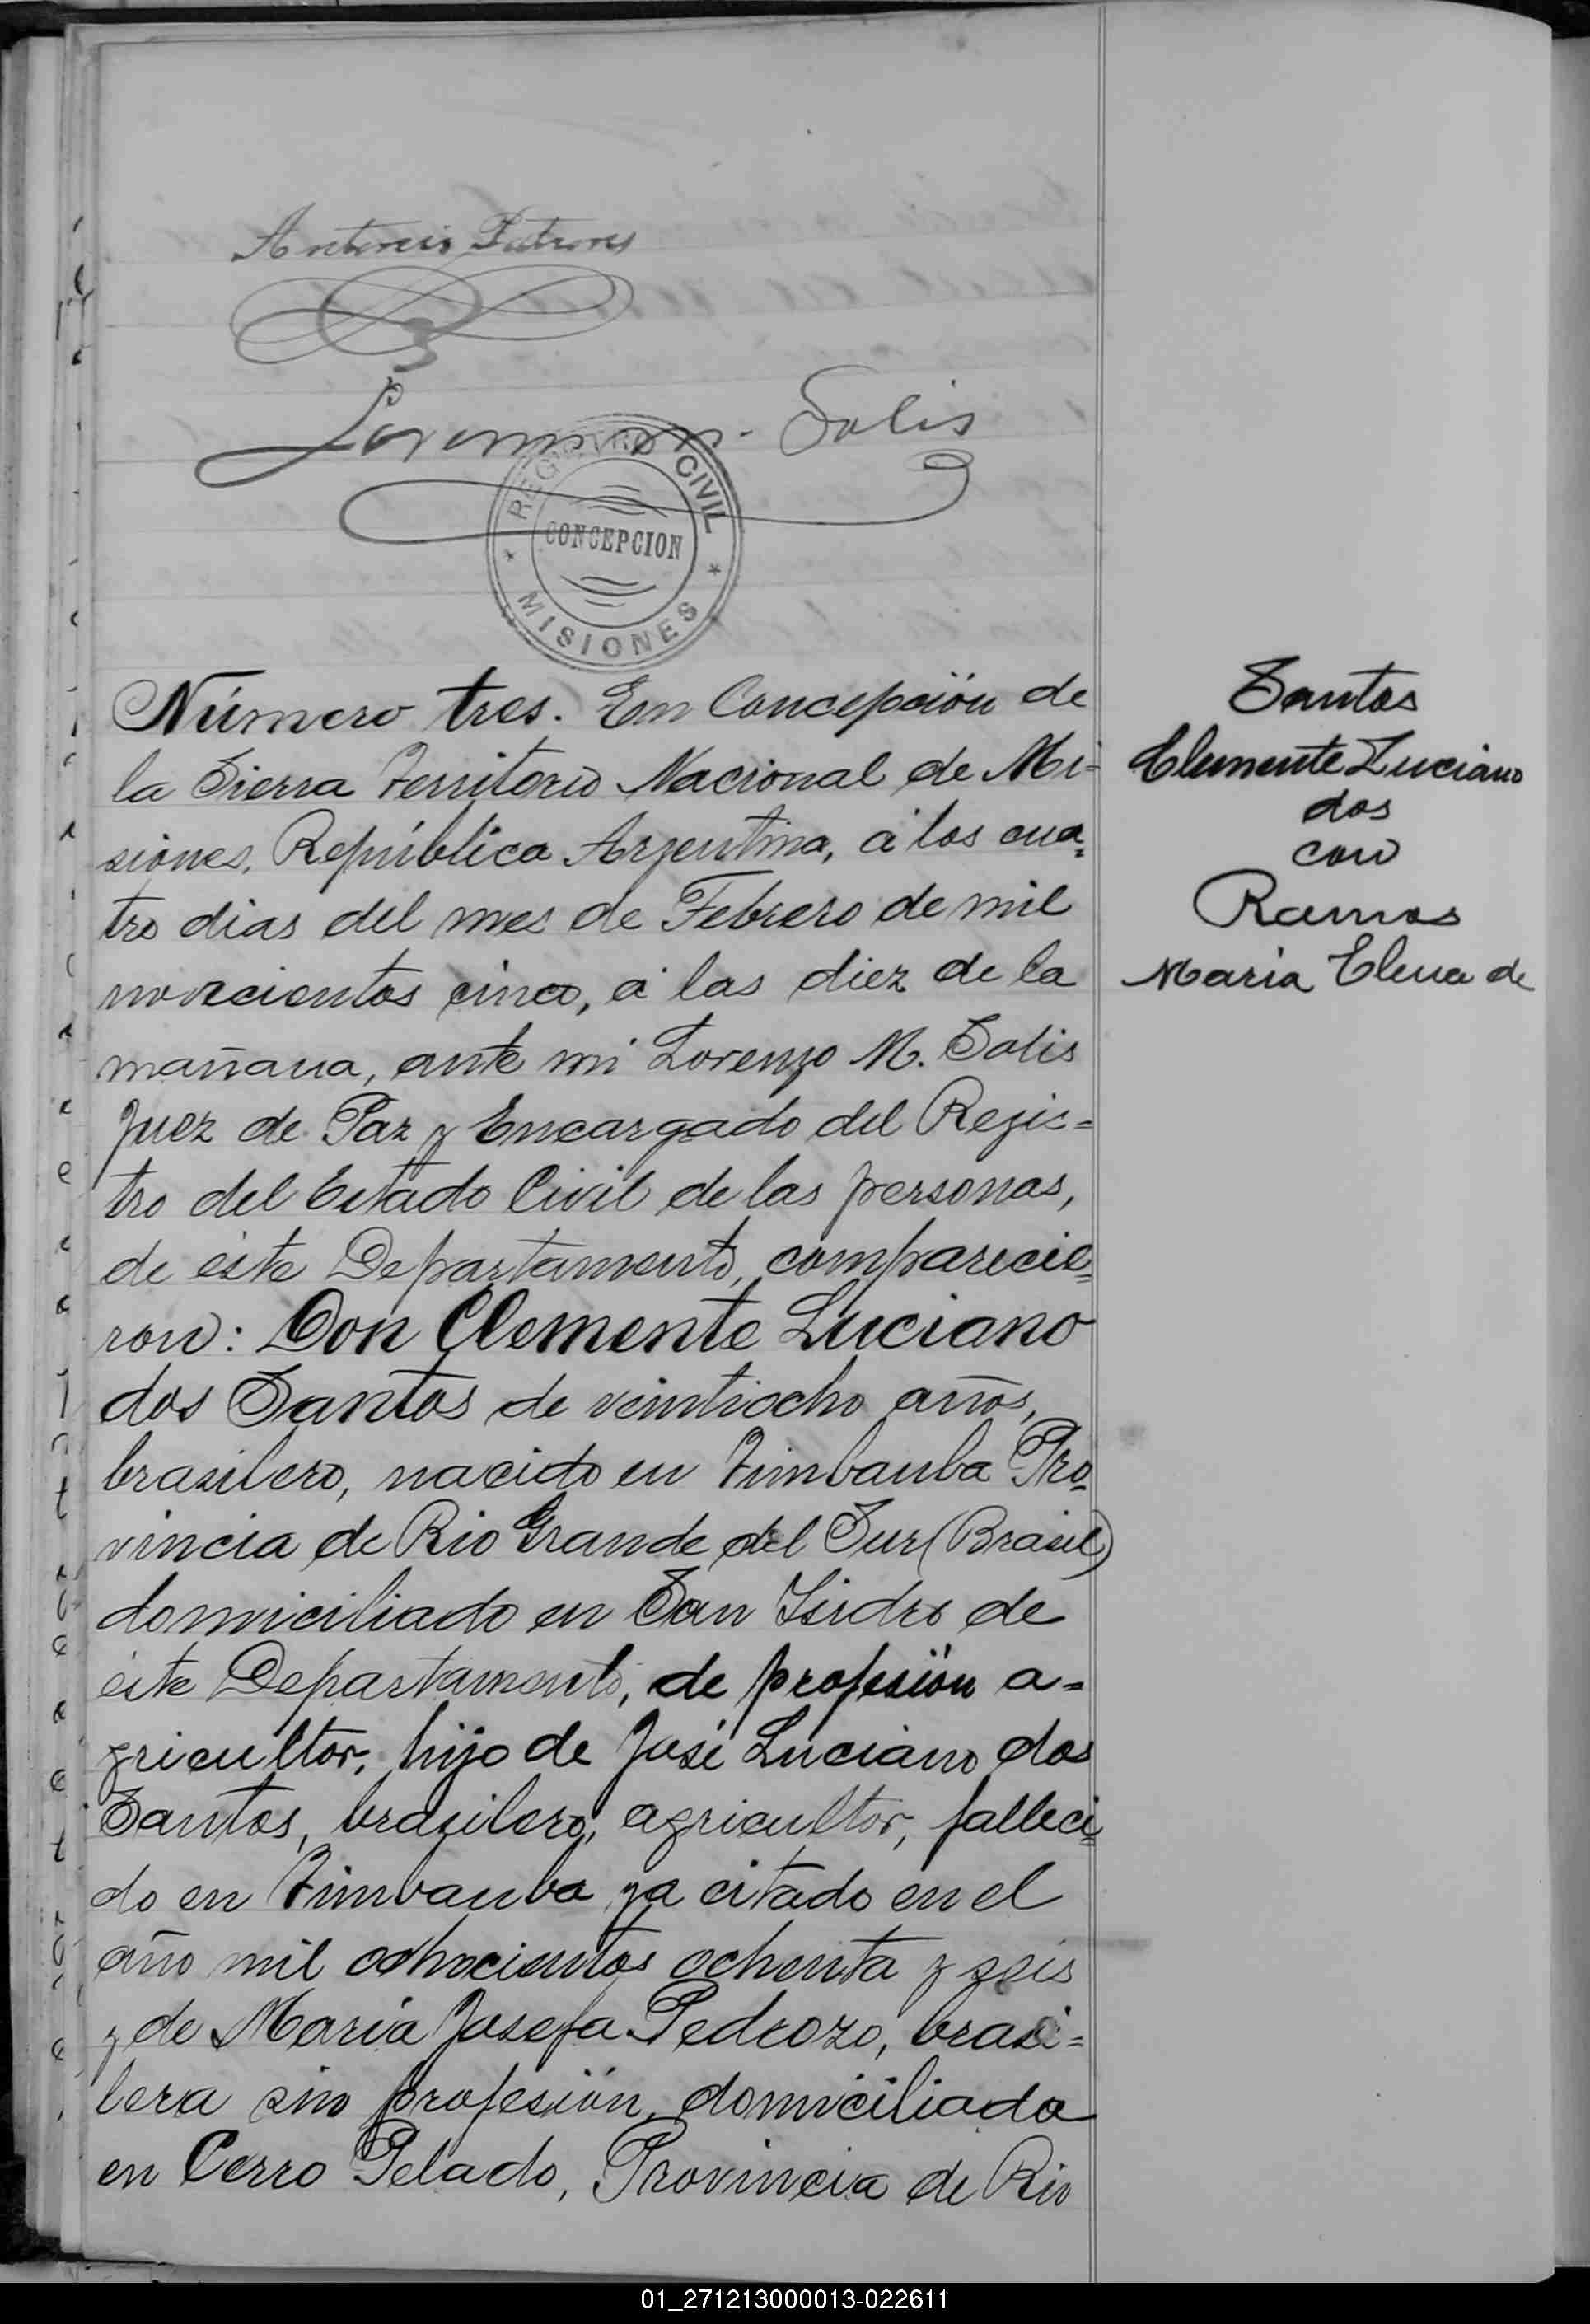 Antonio
Lorenzo M. Solis
REGISTRO CIVIL
CONCEPCION
MISIONES
Número tres. En Concepción de
la Sierra Territorio Nacional de Mi=
siones, República Argentina, á los cua=
tro dias del mes de Febrero de mil
novecientos cinco, á las diez de la
mañana, ante mi Lorenzo M. Solis
Juez de Paz y Encargado del Regis=
tro del Estado Civil de las personas,
de éste Departamento, comparecie=
ron: Don Clemente Luciano
dos Santos de veintiocho años,
brasilero, nacido en Timbauba Pro=
vincia de Rio Grande del Sur (Brasil)
domiciliado en San Isidro de
éste Departamento, de profesión a=
gricultor, hijo de José Luciano dos
Santos, brazilero, agricultor, falleci=
do en Timbauba ya citado en el
año mil ochocientos ochenta y seis
y de Maria Josefa Pedrozo, brasi=
lera sin profesión, domiciliada
en Cerro Pelado, Provincia de Rio
Santos
Clemente Luciano
dos
con
Ramos
Maria Elena de
01_271213000013-022611